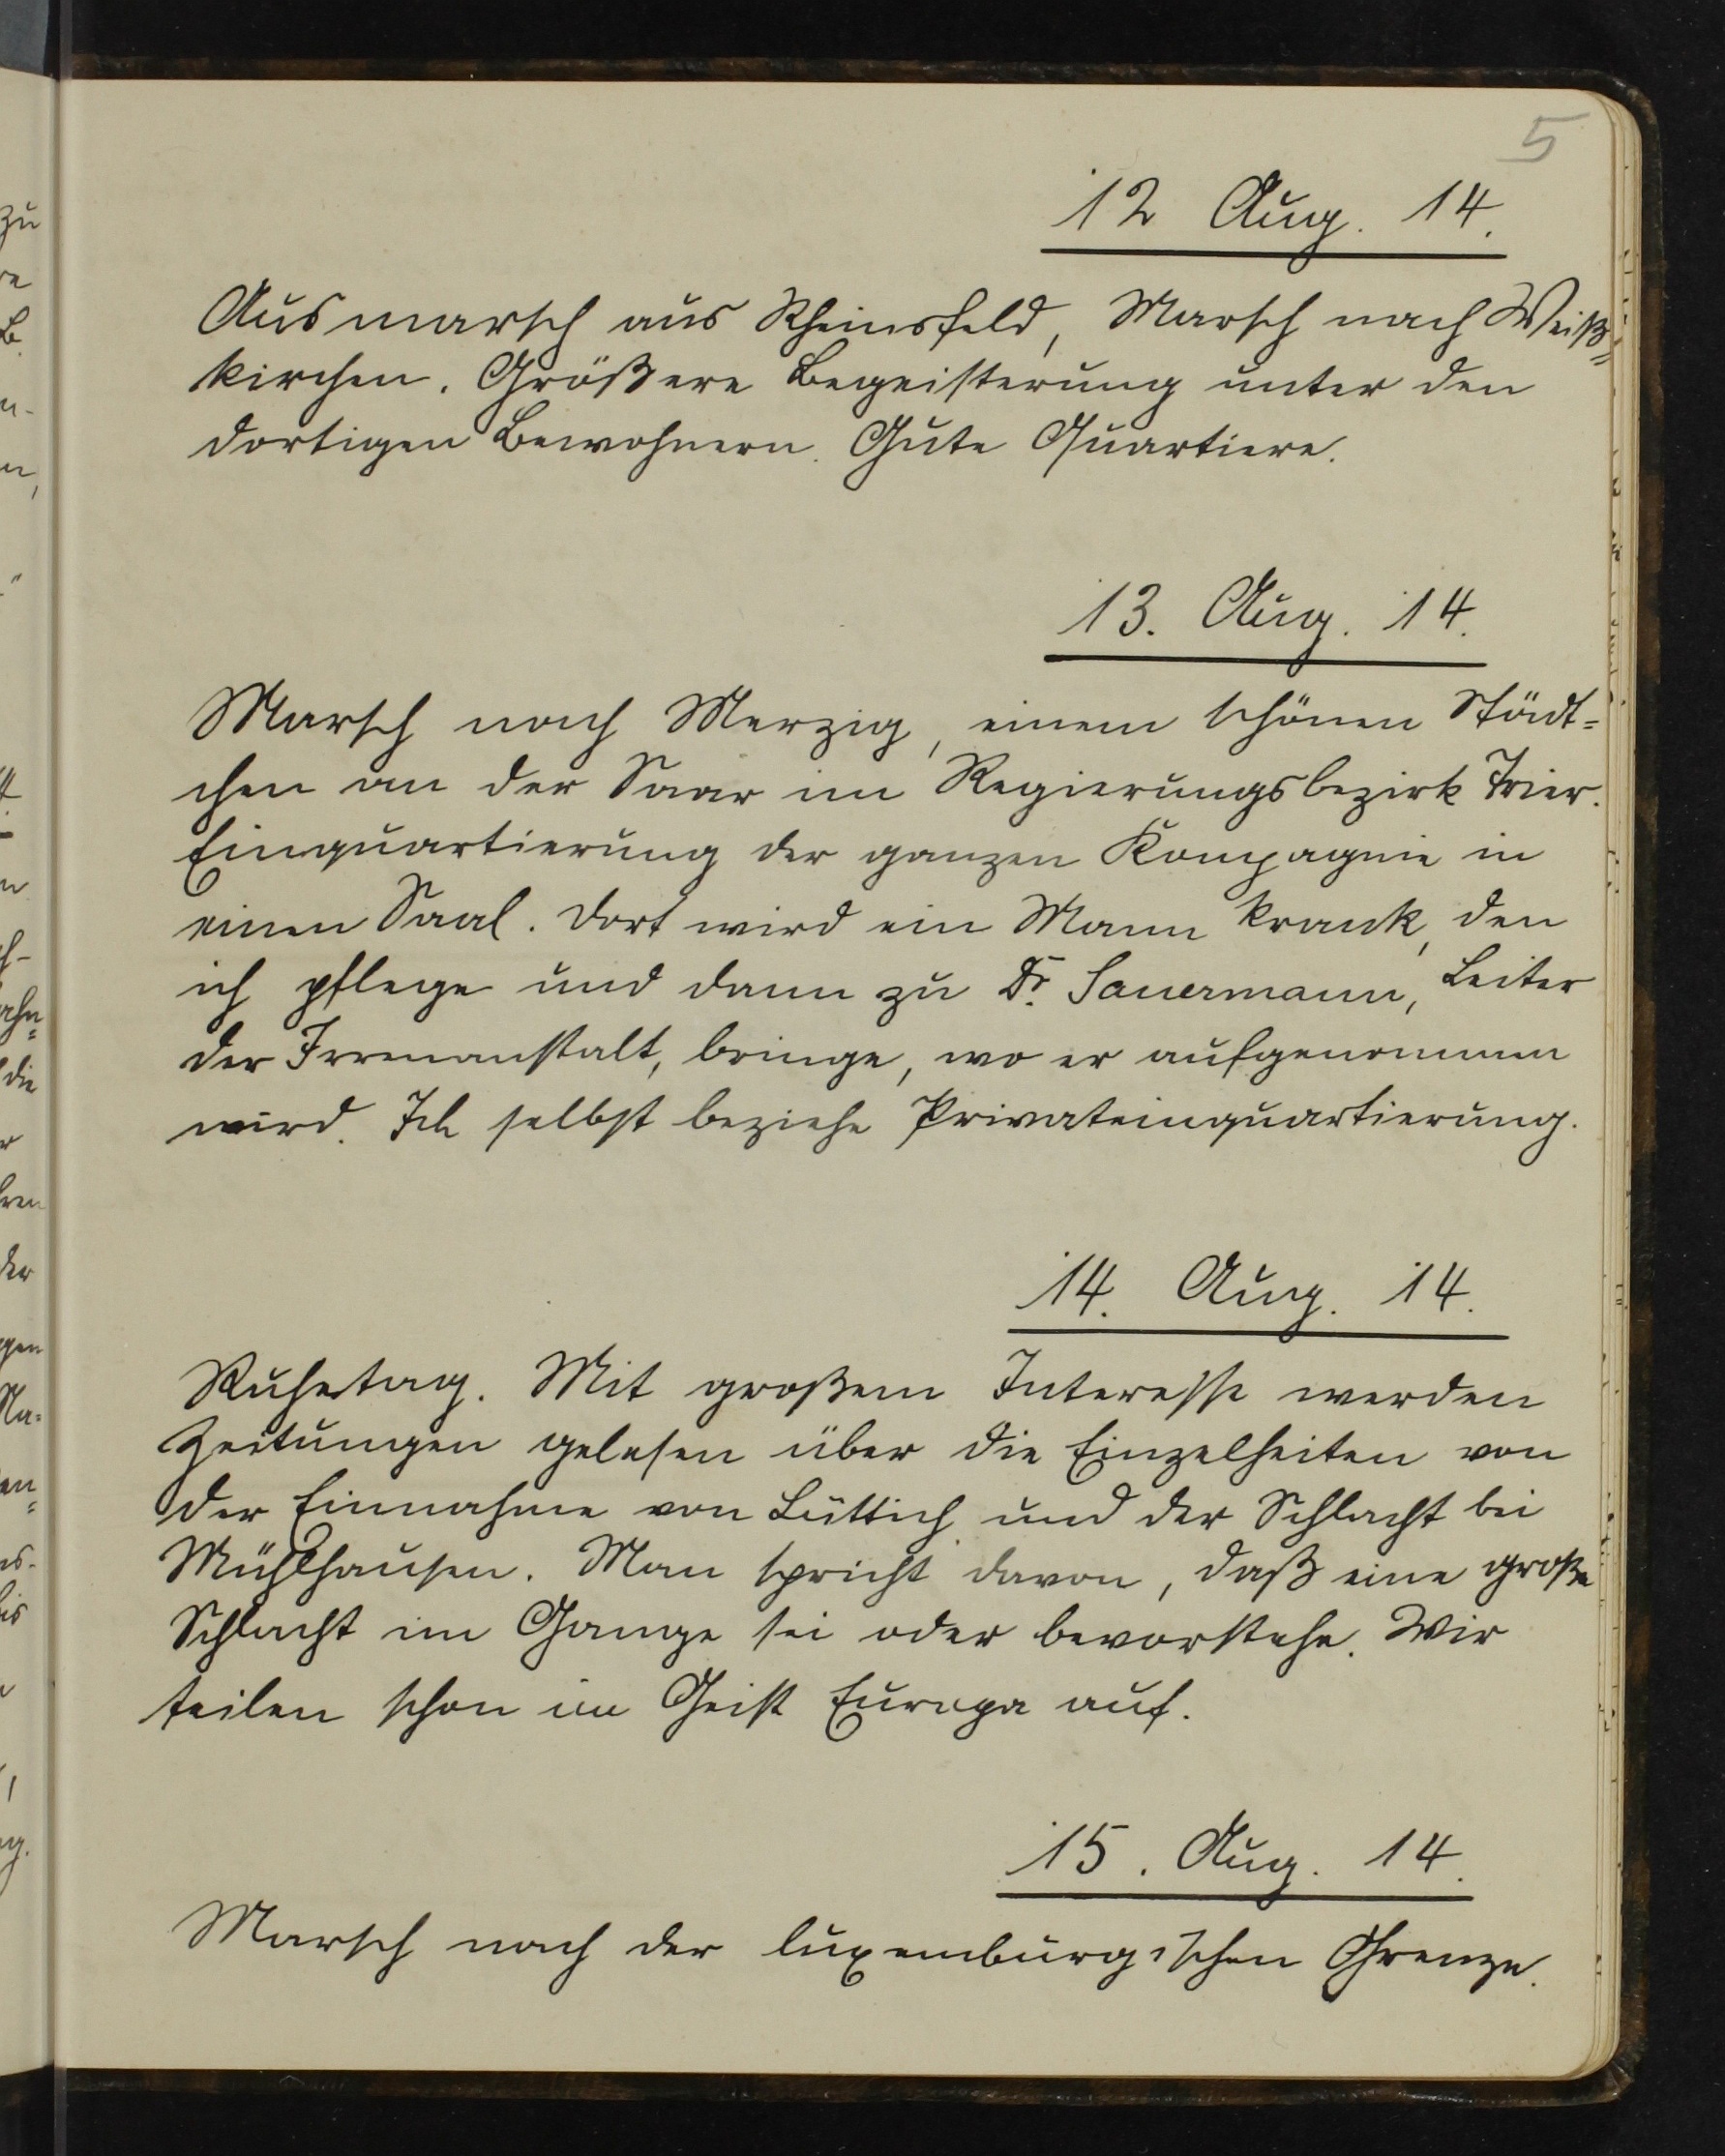 5
12 Aug. 14.
Ausmarsch aus Rheinsfeld, Marsch nach Weiß=
kirchen. Größere Begeisterung unter den
dortigen Bewohnern. Gute Quartiere.
13. Aug. 14.
Marsch nach Merzig, einem schönen Städt=
chen an der Saar im Regierungsbezirk Trier.
Einquartierung der ganzen Kompagnie in
einen Saal. Dort wird ein Mann krank, den
ich pflege und dann zu Dr. Sauermann, Leiter
der Irrenanstalt, bringe, wo er aufgenommen
wird. Ich selbst beziehe Privateinquartierung.
14. Aug. 14.
Ruhetag. Mit großem Interesse werden
Zeitungen gelesen über die Einzelheiten von
der Einnahme von Lüttich und der Schlacht bei
Mühlhausen. Man spricht davon, daß eine große
Schlacht im Gange sei oder bevorstehe. Wir
teilen schon im Geist Europa auf.
15. Aug. 14.
Marsch nach der luxemburgischen Grenze.